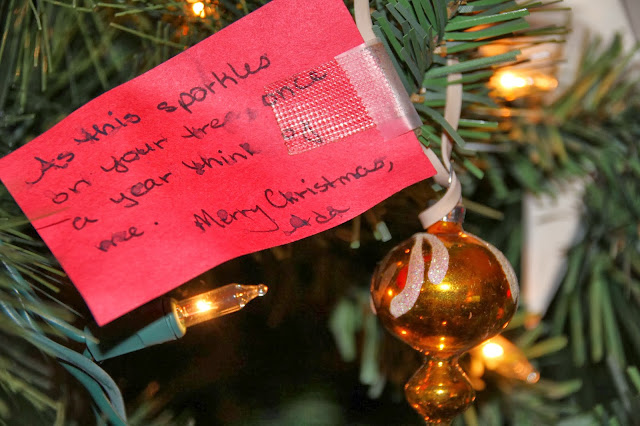 As this sparkles
on your tree, once
a year think of
me. Merry Christmas,
Ada